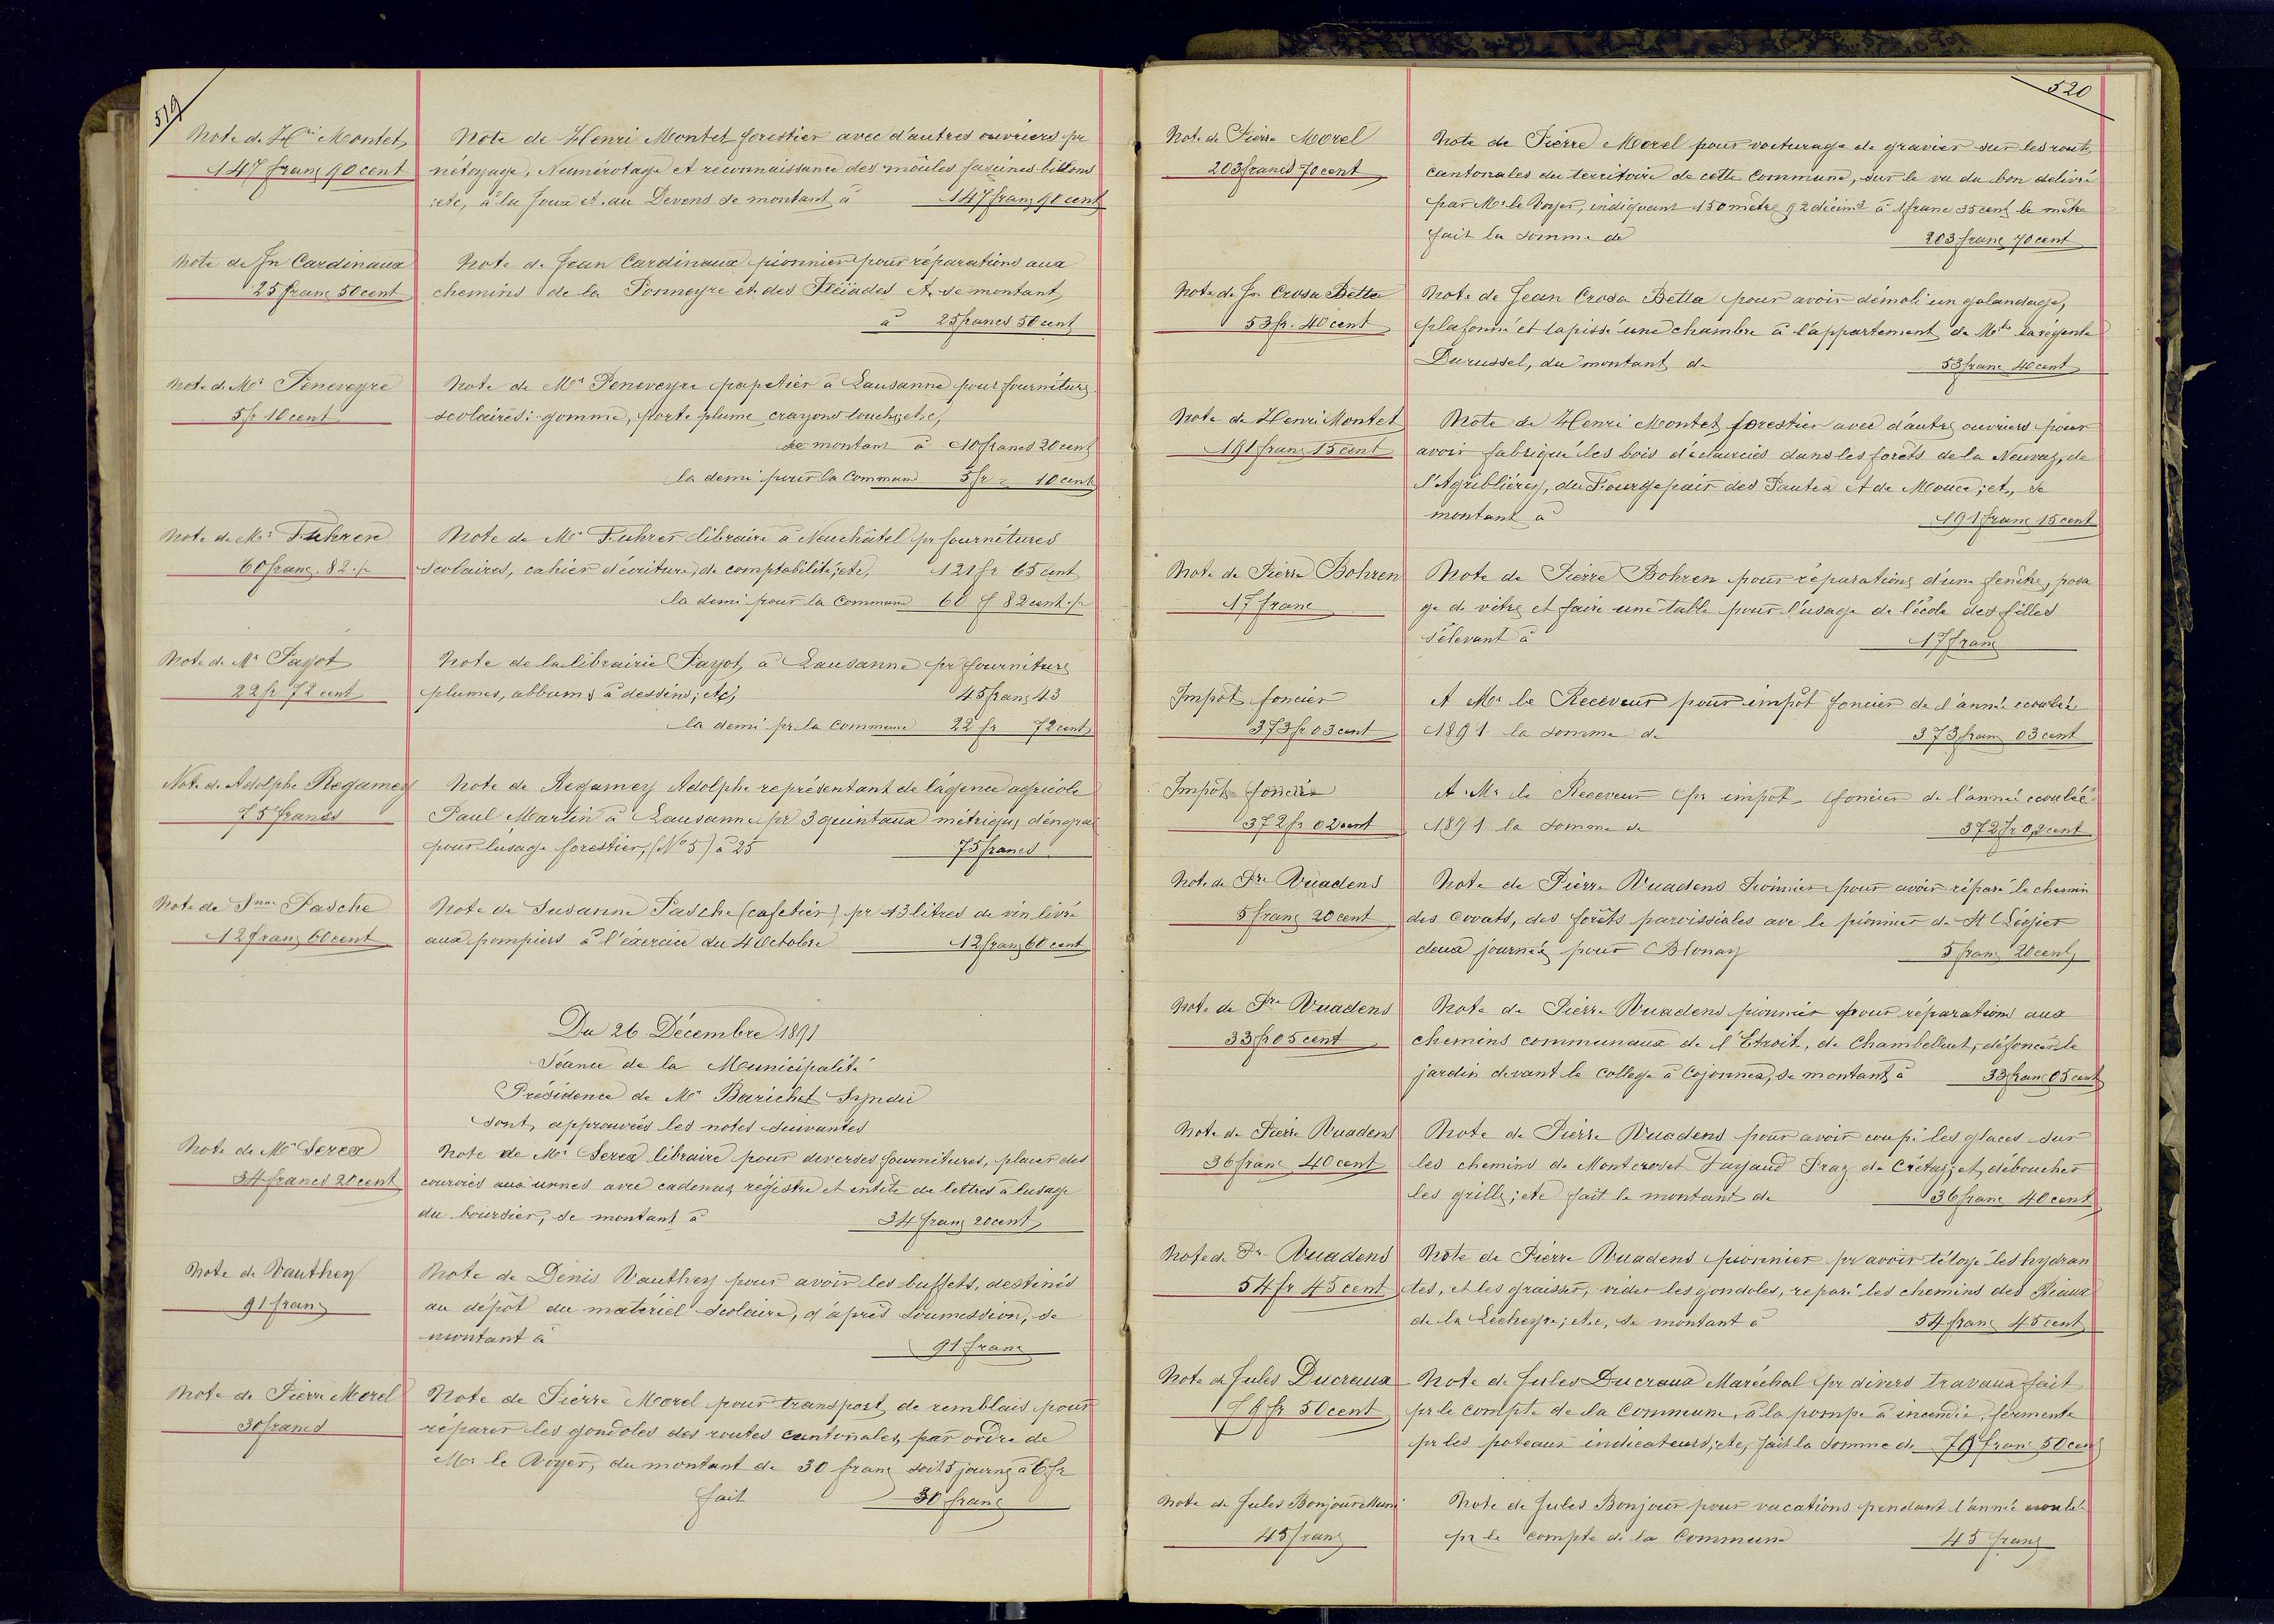 519
Note de Hri Montet
147 franc 90 cent
Note de Henri Montet forestier avec d'autres ouvriers pr
nétoyage, Numérotage et reconnaissance des moules fascines billons
etc, à la Joux et au Devens se montant à 147 franc 90 cent
Note de Jn Cardinaux
25 franc 50 cent
Note de Jean Cardinaux pionnier pour réparations aux
chemins de la Ponneyre et des Pléiades etc se montant
à 25 francs 50 cent
Note de Mr Peneveyre
5 fr 10 cent
Note de Mr Peneveyre papetier à Lausanne pour fournitures
scolaires: gomme, porte plume crayons touche, etc,
se montant à 10 francs 20 cent
la demi pour la Commune 5 fr = 10 cent
Note de Mr Fuhrer
60 franc. 82 ½
Note de Mr Fuhrer libraire à Neuchâtel pr fournitures
scolaires, cahier d'écriture, de comptabilité, etc, 121 fr 65 cent
la demi pour la Commune 60 f 82 cent ½
Note de Mr Payot
22 fr 72 cent
Note de la librairie Payot à Lausanne pr fourniture
plumes, albums à dessins; etc; 45 franc 43
la demi pr la Commune 22 fr 72 cent
Note de Adolphe Regamey
75 francs
Note de Regamey Adolphe représentant de l'agence agricole
Paul Martin à Lausanne pr 3 quintaux métriques d'engrai
pour l'usage forestier, (No 5) à 25 75 francs
Note de Snne Pasche
12 franc 60 cent
Note de Susanne Pasche (cafetier) pr 13 litres de vin livré
aux pompiers à l'éxercice du 4 Octobre 12 franc 60 cent
Du 26 Décembre 1891
Séance de la Municipalité
Présidence de Mr Barichet Syndic
sont approuvées les notes suivantes
Note de Mr Serex
34 francs 20 cent
Note de Mr Serex libraire pour diverses fournitures, placer des
couroies aux urnes avec cadenas, régistre et entête de lettres à lusage
du boursier, se montant à 34 franc 20 cent
Note de Vauthey
91 franc
Note de Dénis Vauthey pour avoir les buffets, destinés
au dépôt du matériel scolaire, d'après soumission, se
montant à 91 franc
Note de Pierre Morel
30 francs
Note de Pierre Morel pour transport de remblais pour
réparer les gondoles des routes cantonales, par ordre de
Mr le Voyer, du montant de 30 franc soit 5 journe à 6 fr
fait 30 franc
520
Note de Pierre Morel
203 francs 70 cent
Note de Pierre Morel pour voiturage de gravier sur les route
cantonales du territoire de cette Commune, sur le vu du bon délivré
par Mr le Voyer, indiquant 150 mètre 92 décim3 à 1 franc 35 cent le mètre
fait la somme de 203 franc 70 cent
Note de Jn Crosa Betta
53 fr. 40 cent
Note de Jean Crosa Betta pour avoir démoli un galandage,
plafonné et tapissé une chambre à l'appartement de Mlle la régente
Durussel, du montant de 53 franc 40 cent
Note de Henri Montet
191 franc 15 cent
Note de Henri Montet forestier avec d'autres ouvriers pour
avoir fabriqué les bois d'éclaircies dans les forêts de la Neuvaz, de
montant à 191 franc 15 cent
Note de Pierre Bohren
17 franc
Note de Pierre Bohren pour réparations d'une fenêtre, posa
ge de vitre et faire une table pour l'usage de l'école des filles
s'élevant à 17 franc
Impôt foncier
373 fr 03 cent
A Mr le Receveur pour impôt foncier de l'année ecoulée
1891 la somme de 373 franc 03 cent
Impôt foncier
372 fr 02 cent
A Mr le Receveur pr impôt foncier de l'année ecoulée
1891 la somme de 372 fr 02 cent
Note de Pre Vuadens
5 franc 20 cent
Note de Pierre Vuadens Pionnier pour avoir réparé le chemin
des Covats, des forêts paroissiales ave le pionnier de St Légier
deux journée pour Blonay 5 franc 20 cent
Note de Pre Vuadens
33 fr 05 cent
Note de Pierre Vuadens pionnier pour réparations aux
chemins communaux de l'Etroit, de Chambellut, défoncer le
jardin devant le collège à Cojonnex, se montant à 33 franc 05 cent
Note de Pierre Vuadens
36 franc 40 cent
Note de Pierre Vuadens pour avoir coupé les glaces sur
les chemins de Montcrodet Praz de Crétaz, et déboucher
les grille; etc fait le montant de 36 franc 40 cent
Note de Pr Vuadens
54 fr 45 cent
Note de Pierre Vuadens pionnier pr avoir nétoyé les hydran
tes, et les graisser, vider les gondoles, reparé les chemins des Riaux
de la Lécheyre; etc, se montant à 54 franc 45 cent
Note de Jules Ducraux
79 fr 50 cent
Note de Jules Ducraux Maréchal pr divers travaux fait
pr le compte de la Commune, à la pompe à incendie, fermente
pr les poteaux indicateurs; etc, fait la somme de 79 franc 50 cent
Note de Jules Bonjour Muni
45 franc
Note de Jules Bonjour pour vacations pendant l'année ecoulé
pr le compte de la Commune 45 franc